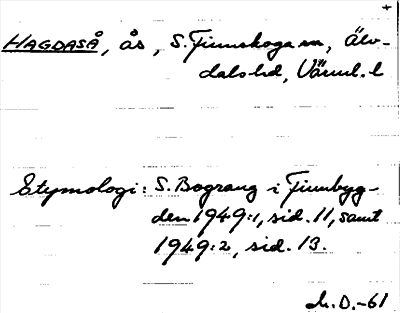 HAGDASÅ, ås, S. Finnskoga sn, Älv-
dals hd, Värml. l
Etymologi: S. Bograng i Finnbyg-
den 1949:1, sid. 11, samt
1949:2, sid. 13.
D. -61